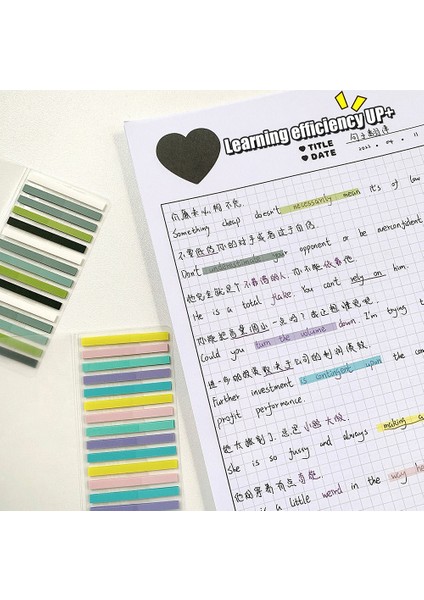 Learning efficiency UP+
TITLE 句子翻译
DATE 2021 . 04 . 11
价廉未必物不优
Something cheap doesn't necessarily mean it's of low
不要低估你的对手或者过于自信
Don't underestimate your opponent or be overconfident
他完全就是个不靠谱的人,你不能依靠他
He is a total flake. You can't rely on him.
你能把音量调小一点吗?我正想
Could you turn the volume down. I'm trying t
进一步的投资取决于公司的利润
Further investment is contingent upon the com
profit performance.
她太挑剔了,总是小题大做
She is so fussy and always making
他的穿着有点奇怪
is a little weird in the way he